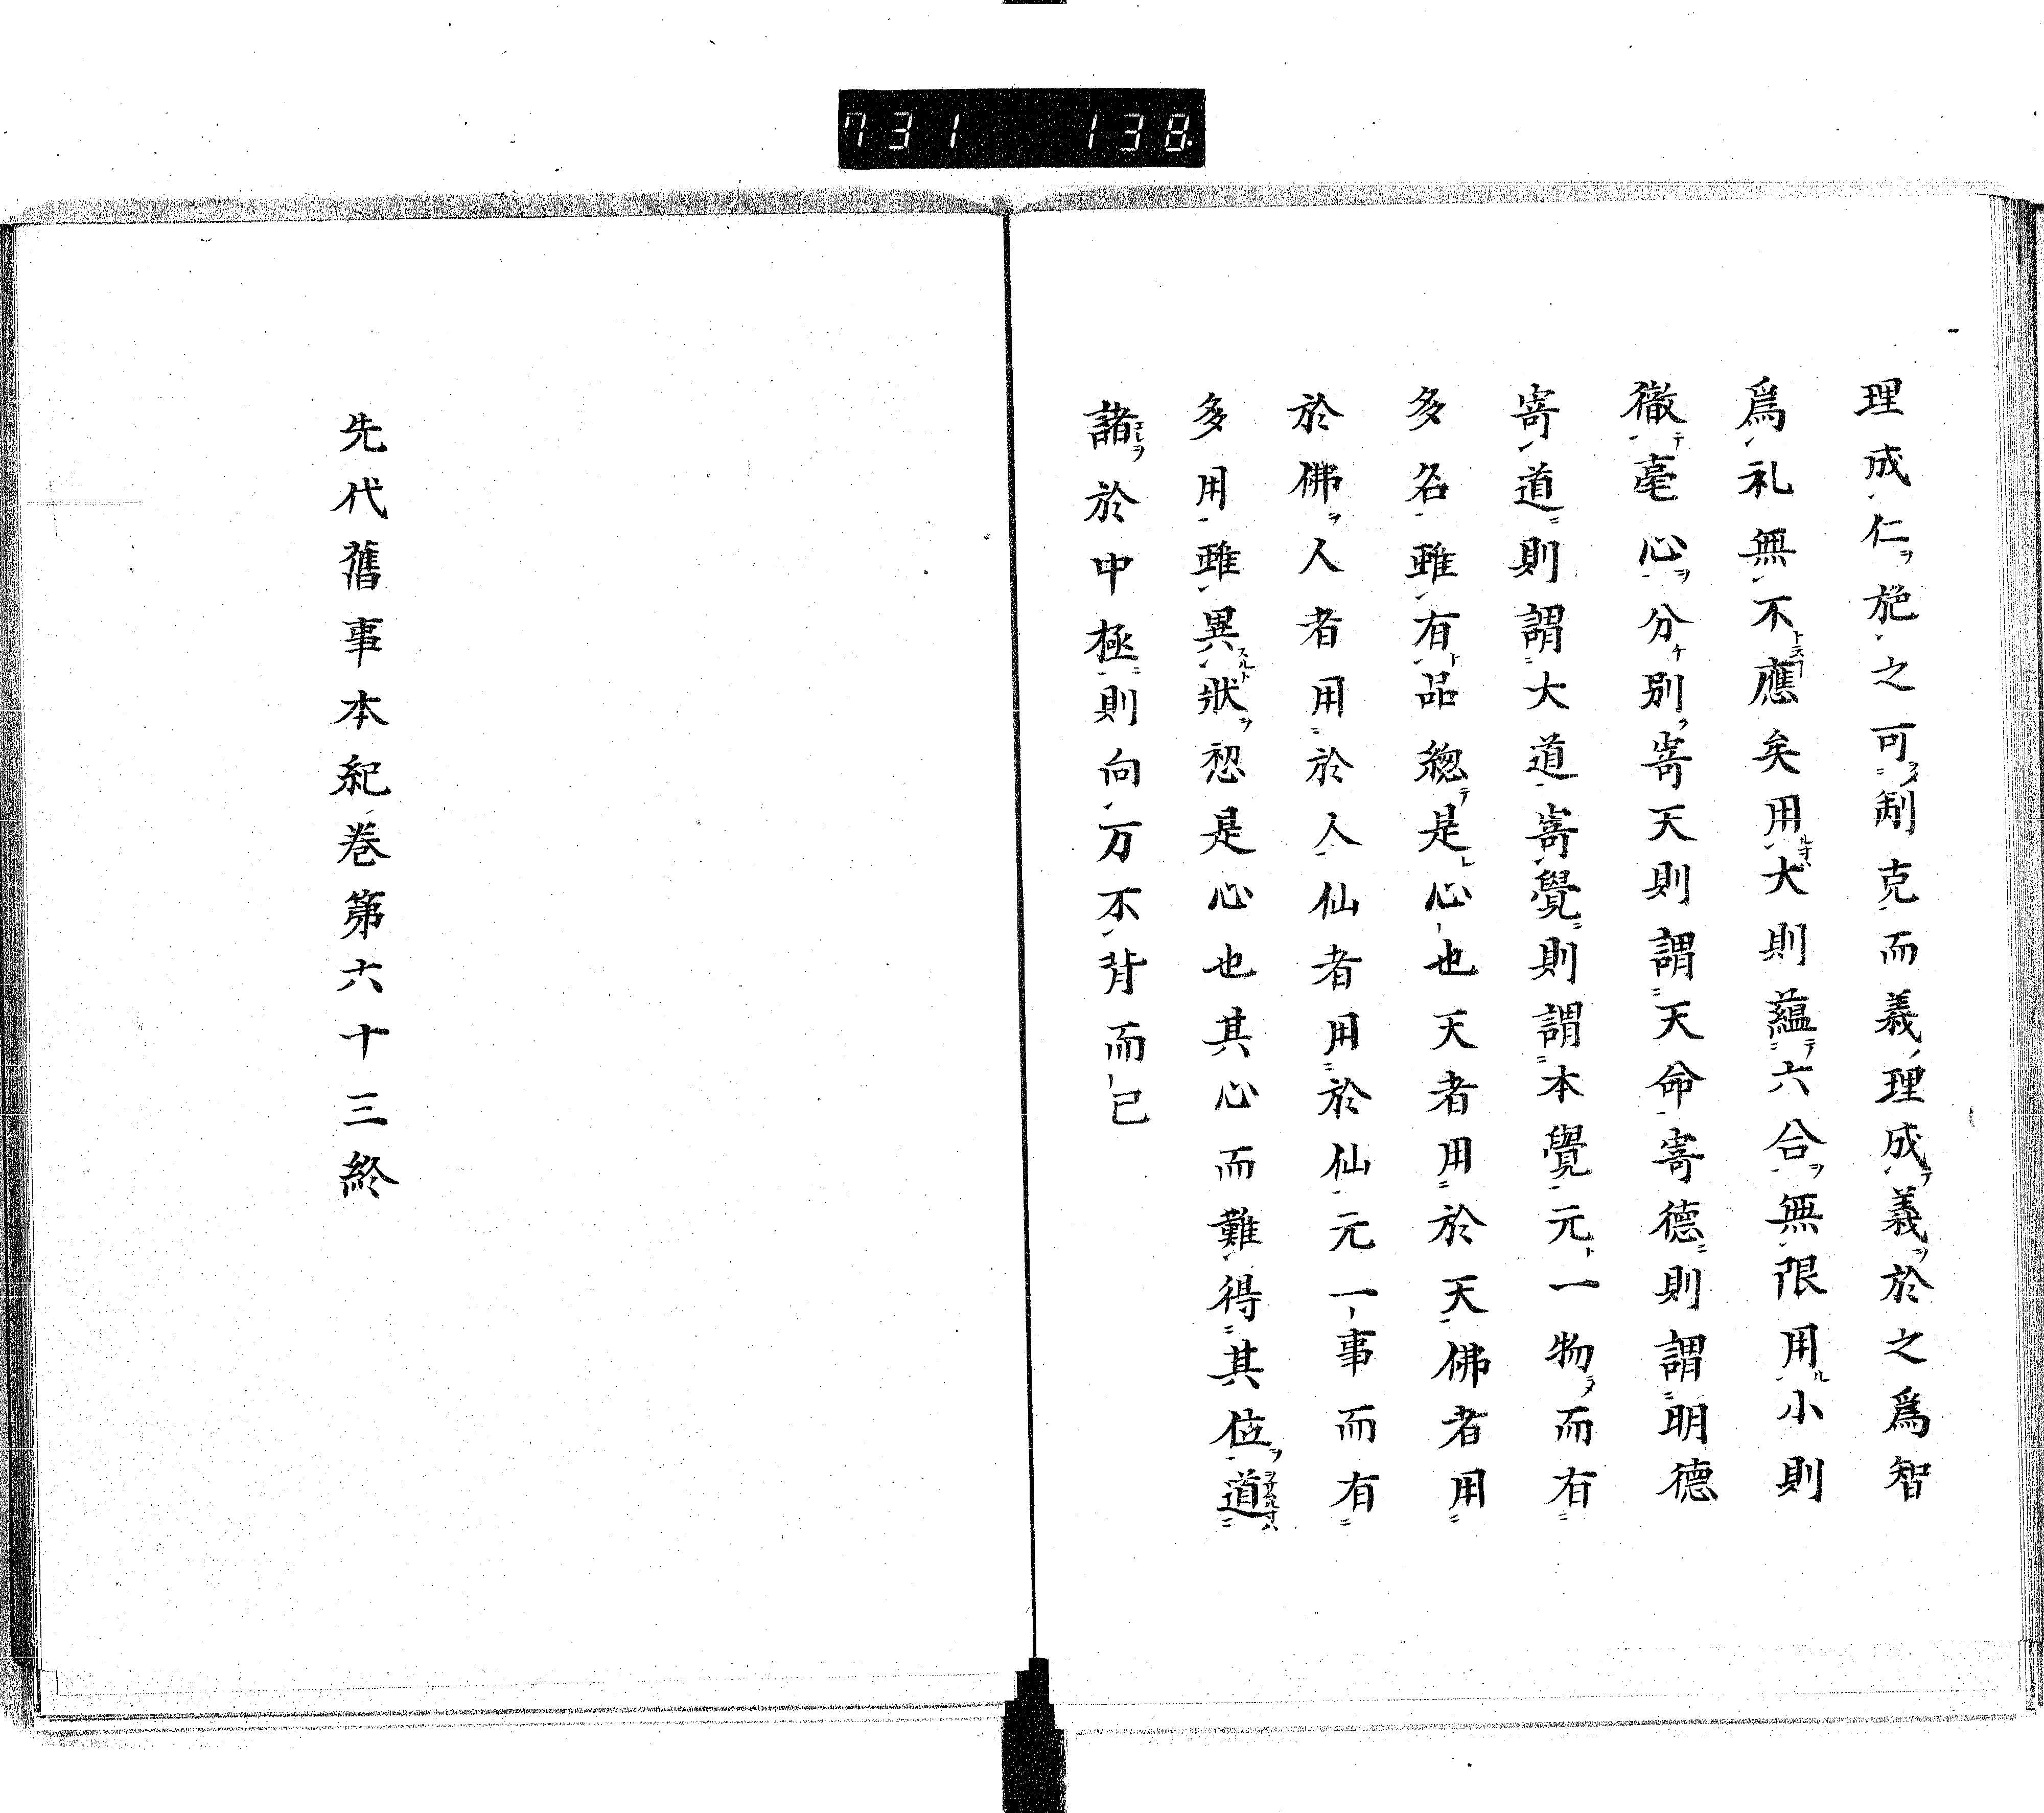 731 138
理成仁施之可制克而義理成義於之爲智
爲礼無不應矣用大則蘊六合無限用小則
徹毫心分別寄天則謂天命寄德則謂明德
寄道則謂大道寄覺則謂本覺元一物而有
多名雖有品總是心也天者用於天佛者用
於佛人者用於人仙者用於仙元一事而有
多用雖異狀惣是心也其心而難得其位道
諸於中極則向方不背而已
先代舊事本紀卷第六十三終